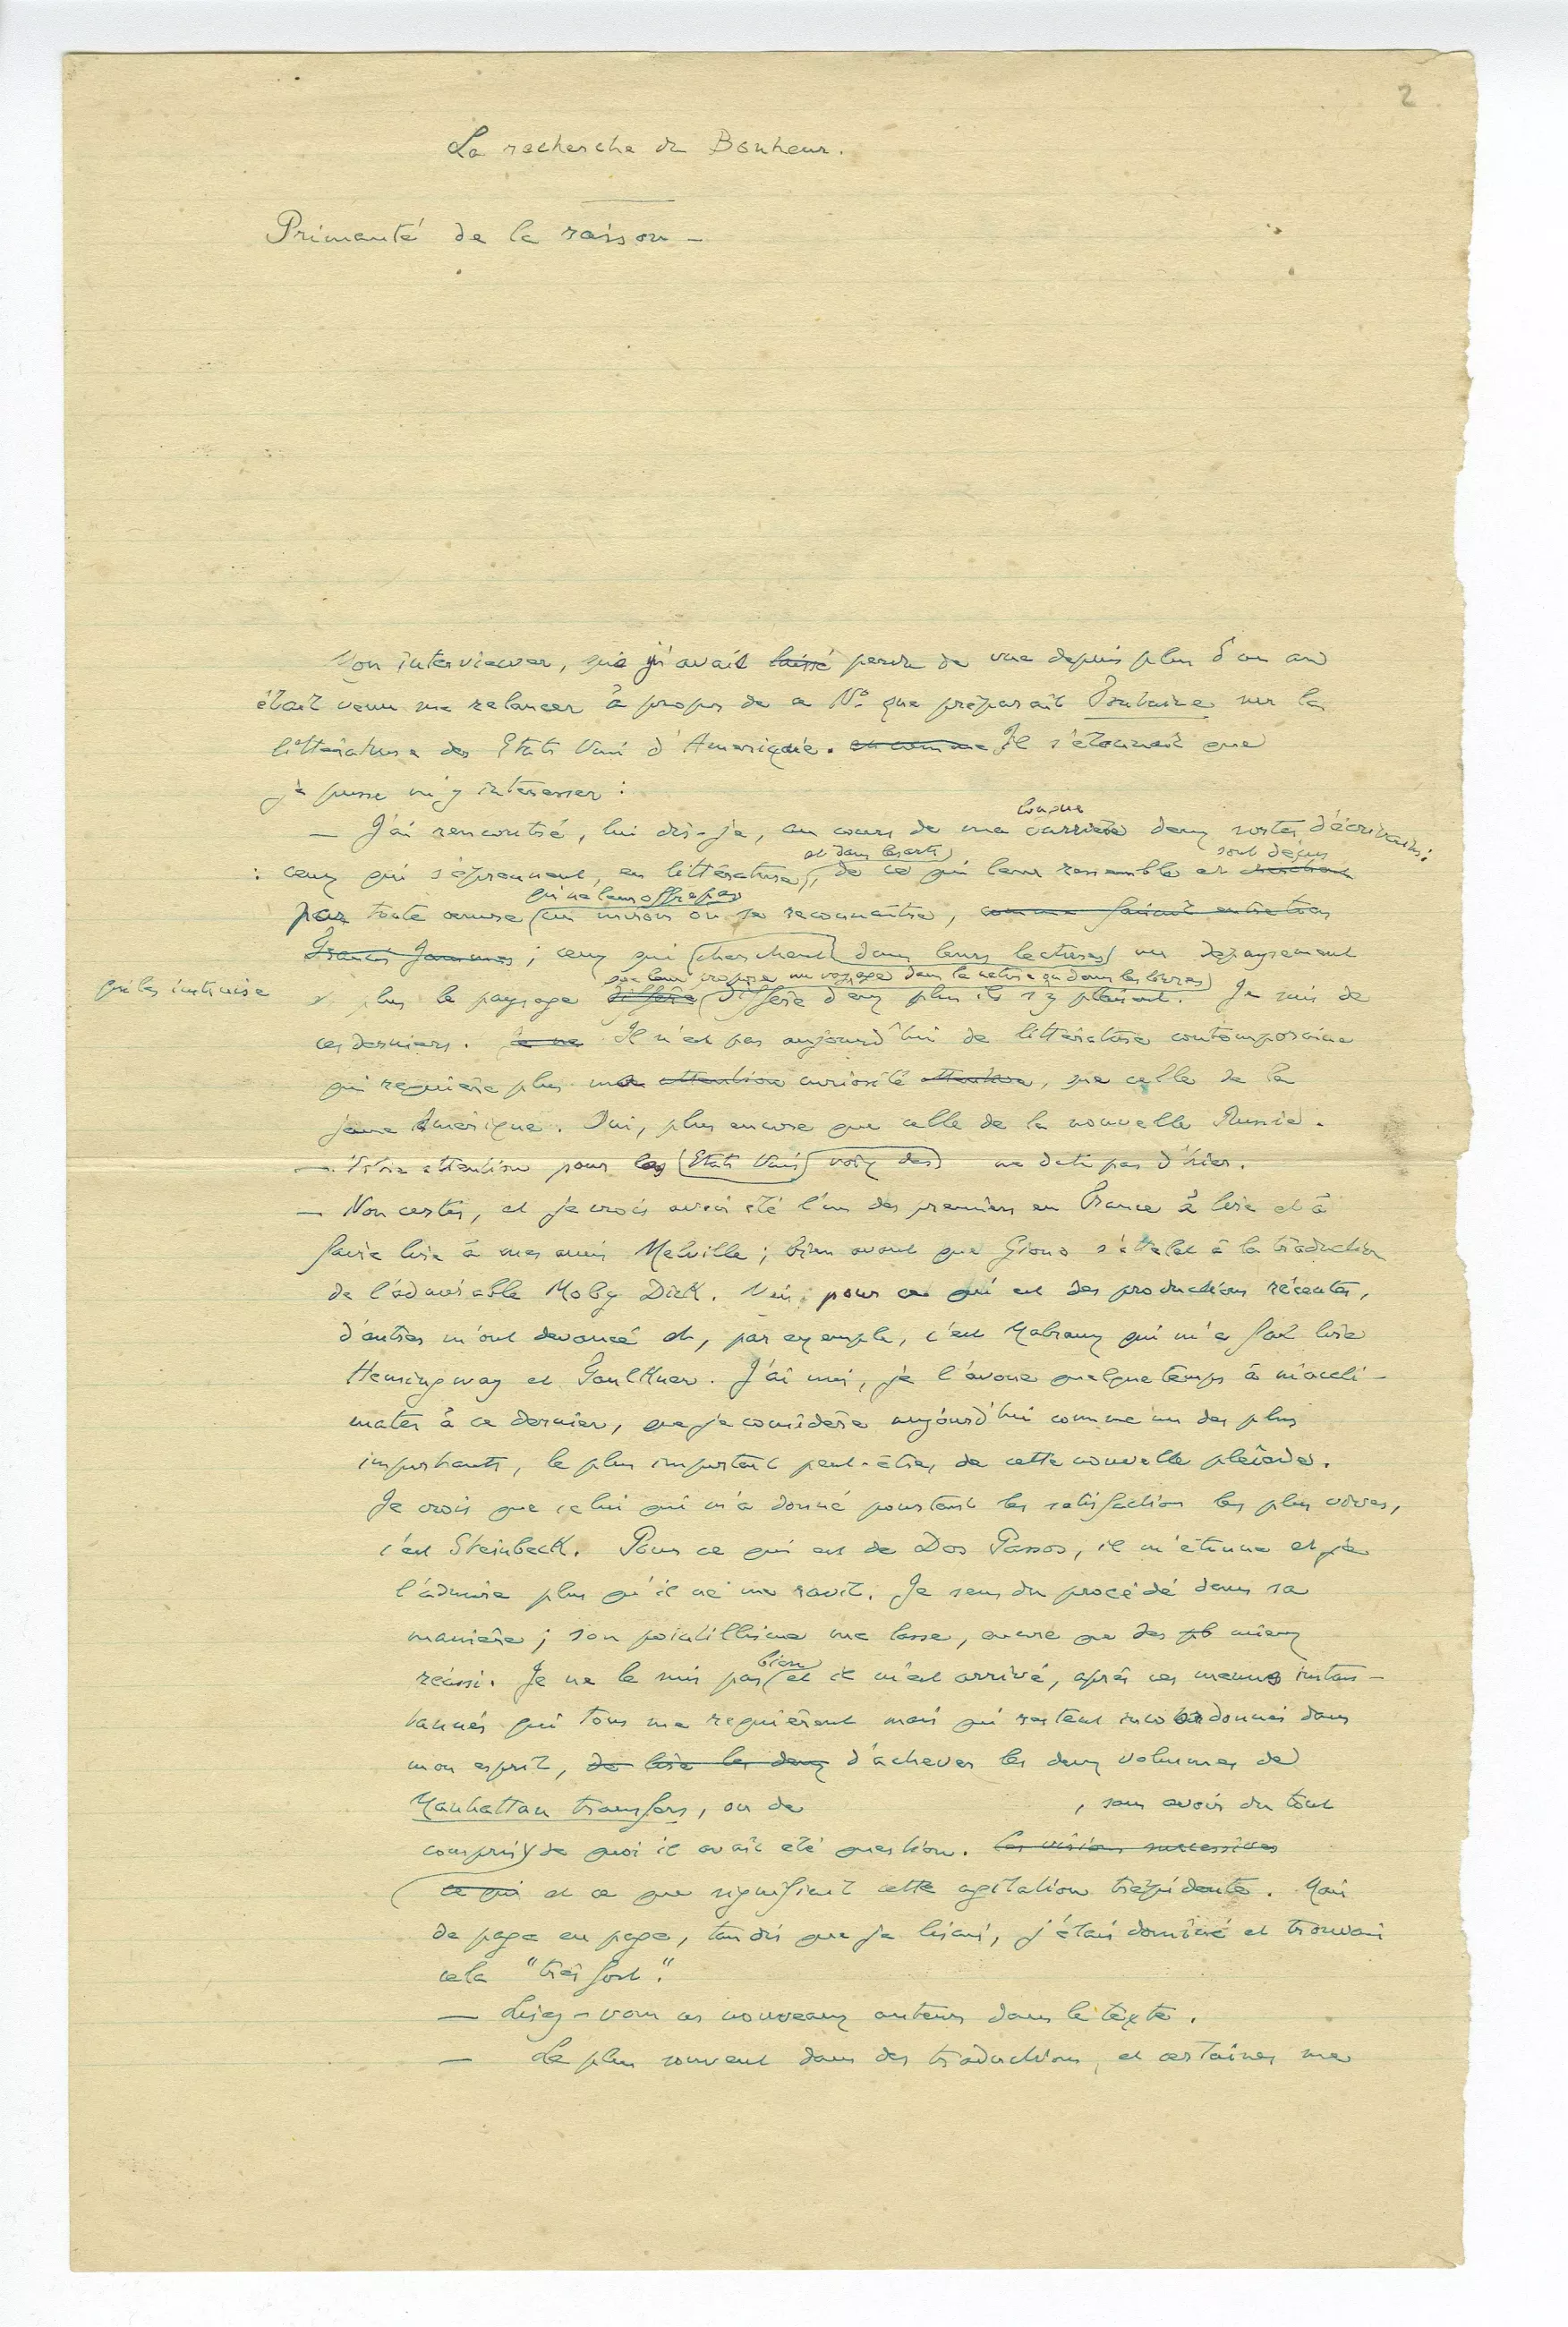 2
La recherche du Bonheur.
Primauté de la raison —
Mon interviewer, que j'avais laissé perdu de vue depuis plus d'un an
était venu me relancer à propos de ce No. que préparait Fontaine sur la
littérature des Etats Unis d'Amérique. Il s'étonnait que
je pusse m'y intéresser :
longue
— J'ai rencontré, lui dis-je, au cours de ma carrière deux sortes d'écrivains :
et dans les arts sont déçus
: ceux qui s'éprennent, en littérature, de ce qui leur ressemble et cherchent
qui ne leur offre pas
par toute oeuvre un miroir où se reconnaître, comme faisait entre tous
Francis Jammes ; ceux qui cherchent dans leurs lectures un dépaysement
que leur propose un voyage dans la nature ou dans les livres
qui les instruise
et plus le paysage diffère diffère d'eux plus ils s'y plaisent. Je suis de
ces derniers. Je ne Il n'est pas aujourd'hui de littérature contemporaine
qui requière plus ma attention curiosité attentive, que celle de la
jeune Amérique. Oui, plus encore que celle de la nouvelle Russie.
— Votre attention pour les Etats Unis voix des ne date pas d'hier.
— Non certes, et je crois avoir été l'un des premiers en France à lire et à
faire lire à mes amis Melville ; bien avant que Giono s'attelât à la traduction
de l'admirable Moby Dick. Mais pour ce qui est des productions récentes,
d'autres m'ont devancé et, par exemple, c'est Malraux qui m'a fait lire
Hemingway et Faulkner. J'ai mis, je l'avoue quelque temps à m'accli-
mater à ce dernier, que je considère aujourd'hui comme un des plus
importants, le plus important peut-être, de cette nouvelle pléiade.
Je crois que celui qui m'a donné pourtant les satisfactions les plus vives,
c'est Steinbeck. Pour ce qui est de Dos Passos, il m'étonne et je
l'admire plus qu'il ne me ravit. Je sens du procédé dans sa
manière ; son pointillisme me lasse, encore que des pb mieux
bien
réussi. Je ne le suis pas et il m'est arrivé, après ces menus instan-
tanés qui tous me requièrent mais qui restent incoordonnés dans
mon esprit, de lire les deux d'achever les deux volumes de
Manhattan transfers, ou de , sans avoir du tout
compris de quoi il avait été question. les visions successives
ce qui et ce que signifiait cette agitation trépidante. Mais
de page en page, tandis que je lisais, j'étais dominé et trouvais
cela "très fort."
— Lisez-vous ces nouveaux auteurs dans le texte.
— Le plus souvent dans des traductions, et certaines me